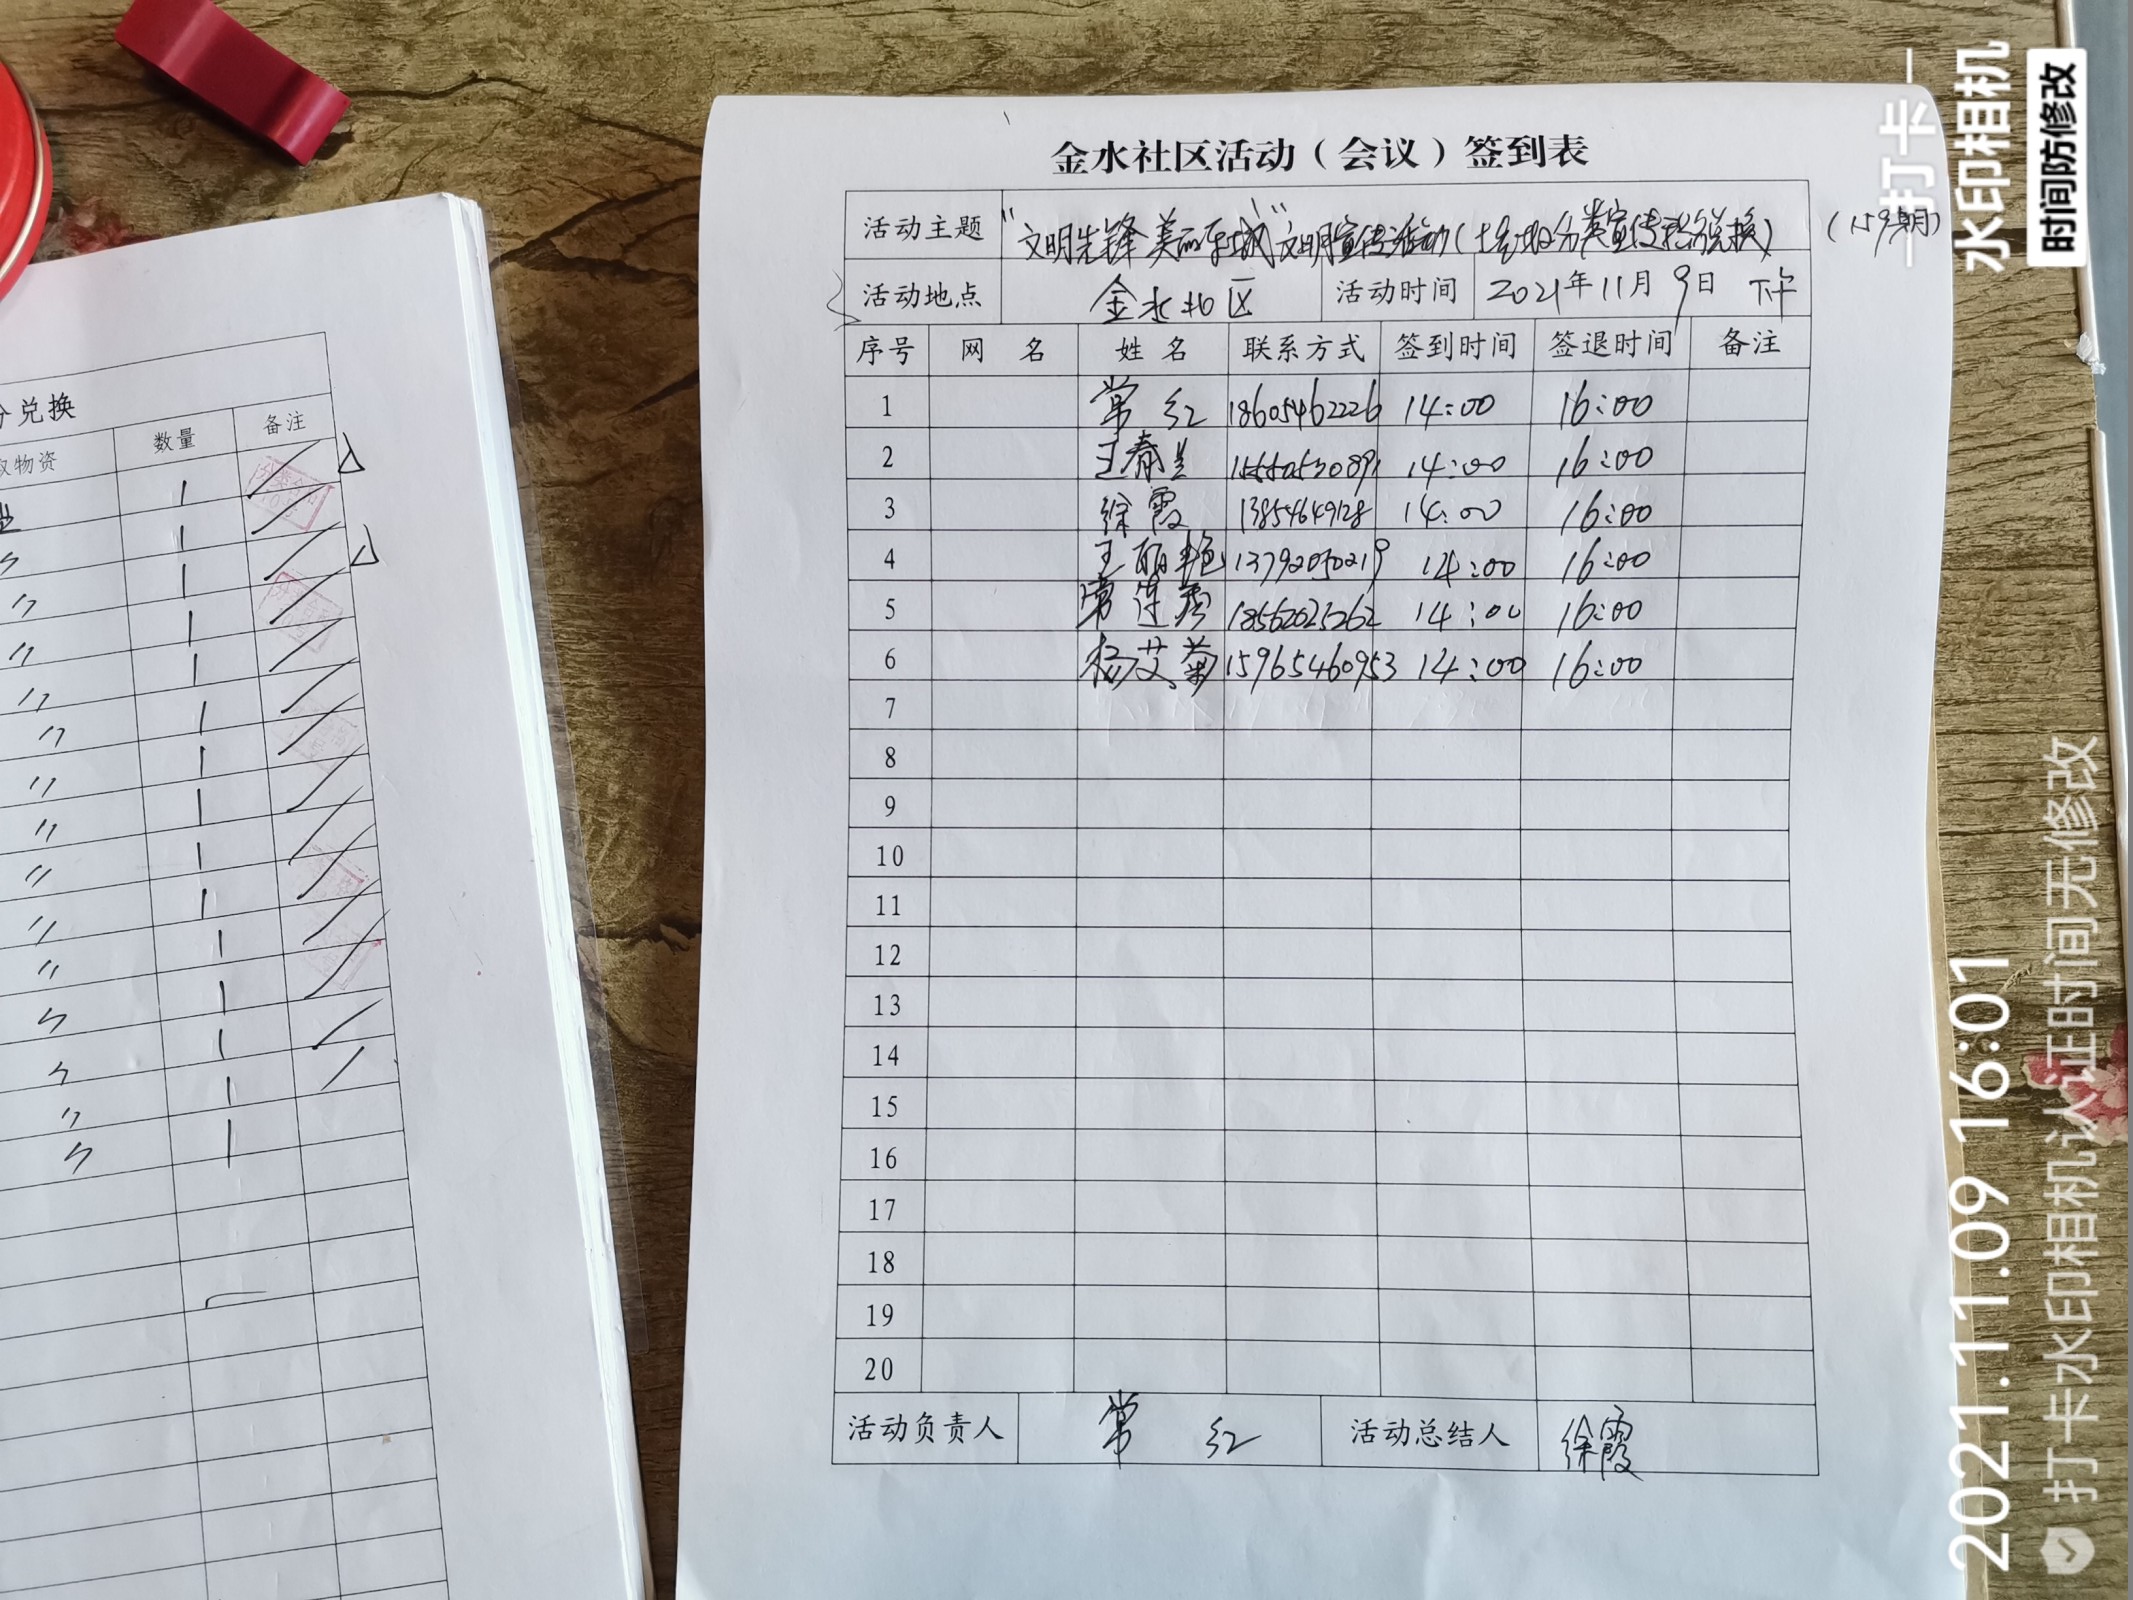 金水社区活动（会议）签到表
活动主题 "文明先锋 美丽东城"文明宣传活动(垃圾分类宣传积分兑换) (159期)
活动地点 金水北区 活动时间 2021年11月9日 下午
序号 网 名 姓 名 联系方式 签到时间 签退时间 备注
1 常红 18605462226 14:00 16:00
2 王春兰 14:00 16:00
3 徐霞 13854649128 14:00 16:00
4 王丽艳 13792050219 14:00 16:00
5 常莲秀 18562025262 14:00 16:00
6 杨艾菊 15965460953 14:00 16:00
7
8
9
10
11
12
13
14
15
16
17
18
19
20
活动负责人 常红 活动总结人 徐霞
分兑换
取物资 数量 备注
打卡
水印相机
时间防修改
2021.11.09 16:01
打卡水印相机认证时间无修改